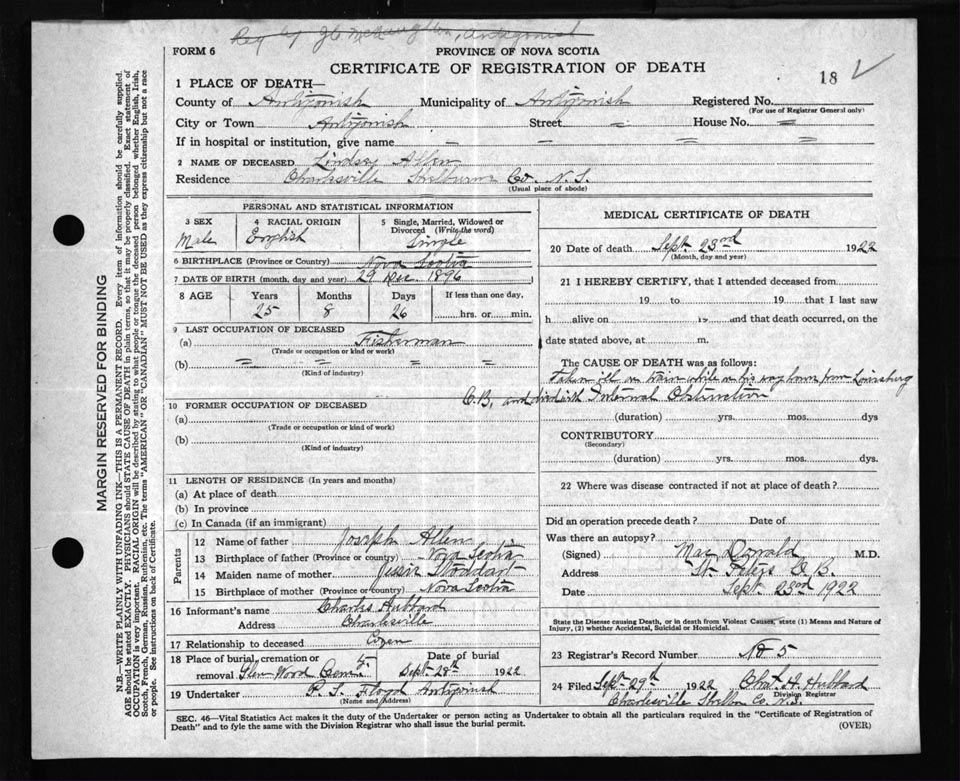 Reg by
FORM 6
PROVINCE OF NOVA SCOTIA
CERTIFICATE OF REGISTRATION OF DEATH
18
1 PLACE OF DEATH—
County of Antigonish Municipality of Antigonish Registered No.
(For use of Registrar General only)
City or Town Antigonish Street = House No. =
If in hospital or institution, give name
2 NAME OF DECEASED Lindsay Allen
Residence Charlesville Shelburne Co. N. S.
(Usual place of abode)
PERSONAL AND STATISTICAL INFORMATION
3 SEX 4 RACIAL ORIGIN 5 Single, Married, Widowed or Divorced (Write the word)
Male English Single
6 BIRTHPLACE (Province or Country) Nova Scotia
7 DATE OF BIRTH (month, day and year) 29 Dec 1896
8 AGE Years Months Days If less than one day,
25 8 26 hrs. or min.
9 LAST OCCUPATION OF DECEASED
(a) Fisherman
(Trade or occupation or kind or work)
(b) = = = =
(Kind of industry)
10 FORMER OCCUPATION OF DECEASED
(a)
(Trade or occupation or kind of work)
(b)
(Kind of industry)
11 LENGTH OF RESIDENCE (In years and months)
(a) At place of death
(b) In province
(c) In Canada (if an immigrant)
Parents
12 Name of father Joseph Allen
13 Birthplace of father (Province or country) Nova Scotia
14 Maiden name of mother Jessie Stoddart
15 Birthplace of mother (Province or country) Nova Scotia
16 Informant's name Charles Hubbard
Address Charlesville
17 Relationship to deceased Cozen
18 Place of burial, cremation or removal Glen Wood Date of burial Sept 28th 1922
19 Undertaker R. S. Floyd Antigonish
(Name and Address)
MEDICAL CERTIFICATE OF DEATH
20 Date of death Sept. 23rd 1922
(Month, day and year)
21 I HEREBY CERTIFY, that I attended deceased from
19 to 19 that I last saw
h alive on 19 and that death occurred, on the
date stated above, at m.
The CAUSE OF DEATH was as follows:
Taken ill on train while on his way home from Louisburg
C.B. and died with Internal Obstruction
(duration) yrs. mos. dys
CONTRIBUTORY
(Secondary)
(duration) yrs. mos. dys.
22 Where was disease contracted if not at place of death?
Did an operation precede death? Date of
Was there an autopsy?
(Signed) Mac Donald M.D.
Address St. Peters C.B.
Date Sept 23rd 1922
State the Disease causing Death, or in death from Violent Causes, state (1) Means and Nature of Injury, (2) whether Accidental, Suicidal or Homicidal.
23 Registrar's Record Number No 5
24 Filed Sept 29th 1922 Chas. H. Hubbard
Division Registrar
Charlesville Co. N.S.
SEC. 46—Vital Statistics Act makes it the duty of the Undertaker or person acting as Undertaker to obtain all the particulars required in the "Certificate of Registration of
Death" and to fyle the same with the Division Registrar who shall issue the burial permit.
(OVER)
MARGIN RESERVED FOR BINDING
N.B.—WRITE PLAINLY WITH UNFADING INK—THIS IS A PERMANENT RECORD. Every item of information should be carefully supplied.
AGE should be stated EXACTLY. PHYSICIANS should STATE CAUSE OF DEATH in plain terms, so that it may be properly classified. Exact statement of
OCCUPATION is very important. RACIAL ORIGIN will be described by stating to what people or tongue the deceased person belonged whether English, Irish,
Scotch, French, German, Russian, Ruthenian, etc. The terms "AMERICAN" OR "CANADIAN" MUST NOT BE USED as they express citizenship but not a race
or people. See instructions on back of Certificate.